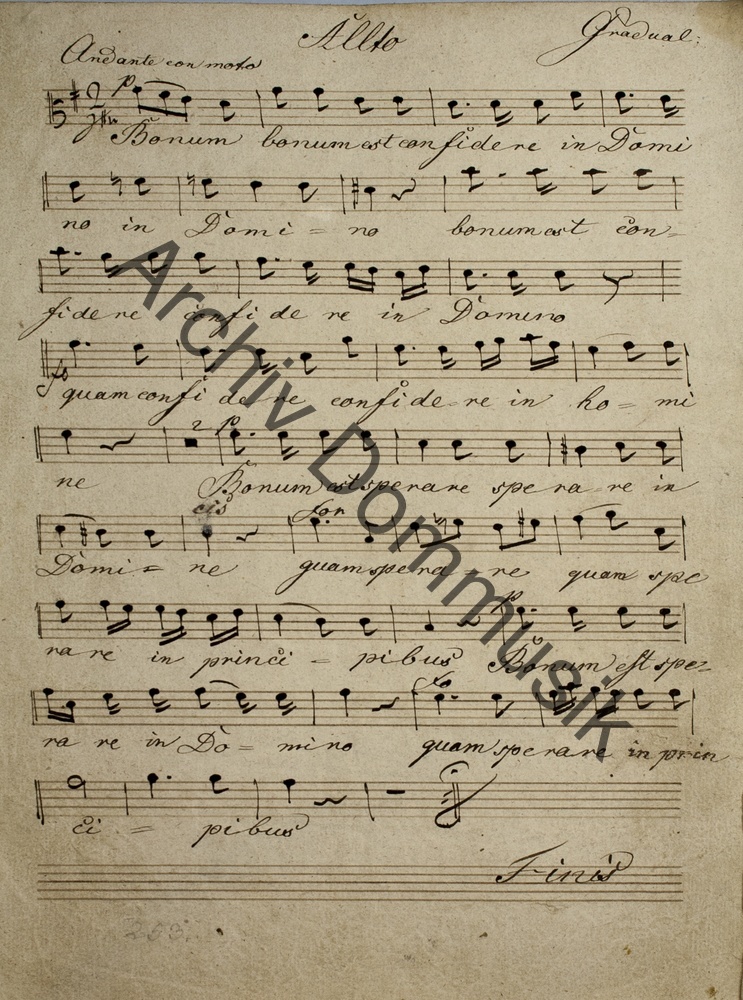 Allto
Gradual:
Andante con moto
p
Bonum bonum est confidere in Domi
no in Domi = no bonum est con=
fidere confidere in Domino
fo
quam confidere confidere in ho = mi
2 p
ne Bonum est sperare sperare in
cis for
Domi = ne quam sperare quam spe
p
rare in princi = pibus Bonum est spe=
fo
rare in Do = mino quam sperare in prin
ci = pibus
Finis
263.
Archiv Dommusik